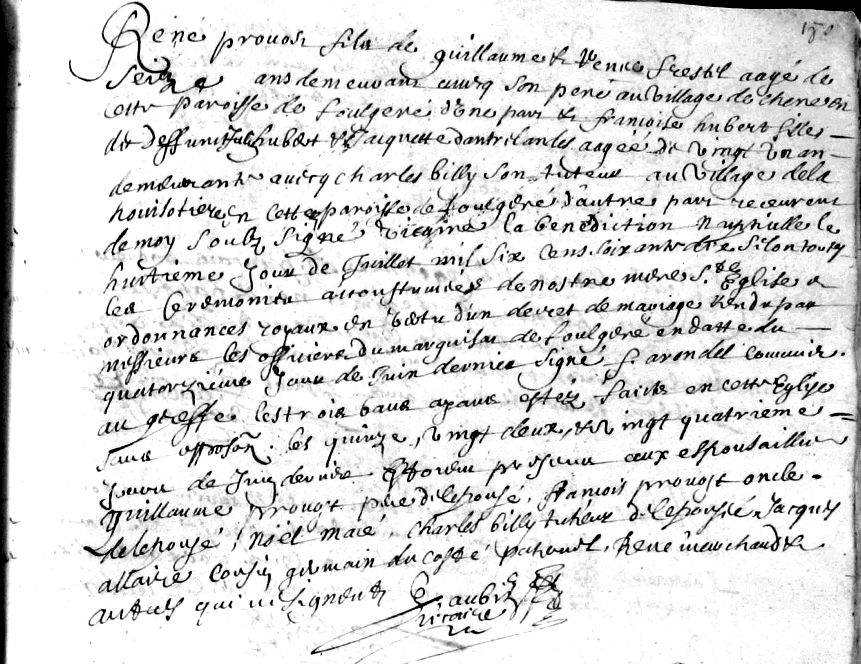 150
René provost fils de guillaume & renee frestel aagé de
seize ans demeurant avecq son pere au village de chene en
cette paroisse de foulgeré d'une part & françoise hubert fille
de deffunt hubert & Jacquette dantrelandes aagée de vingt un an
demeurante avecq charles billy son tuteur au village de la
en cette paroisse de foulgeré d'autre part receurent
de moy soubz signé vicaire la benediction nuptialle le
huitieme jour de Juillet mil six cens soixante selon toutes
les ceremonies accoustumées de nostre mere Ste Eglise &
ordonnances royaux en vertu d'un decret de mariage rendu par
messieurs les officiers du marquisat de foulgeré en datte du
quatorzieme jour de Juin dernier signé f. arondel commis
au greffe les trois bans ayans estez faits en cette Eglise
sans opposon les quinze, vingt deux, & vingt quatrieme
jours de Juin dernier presens aux espousailles
guillaume provost pere de lespousé, françois provost oncle
de lespousé, noël maié, charles billy tuteur de lespousée Jacques
allaire cousin germain du costé paternel, René marchand &
autres qui ne signent
aubin
vicaire